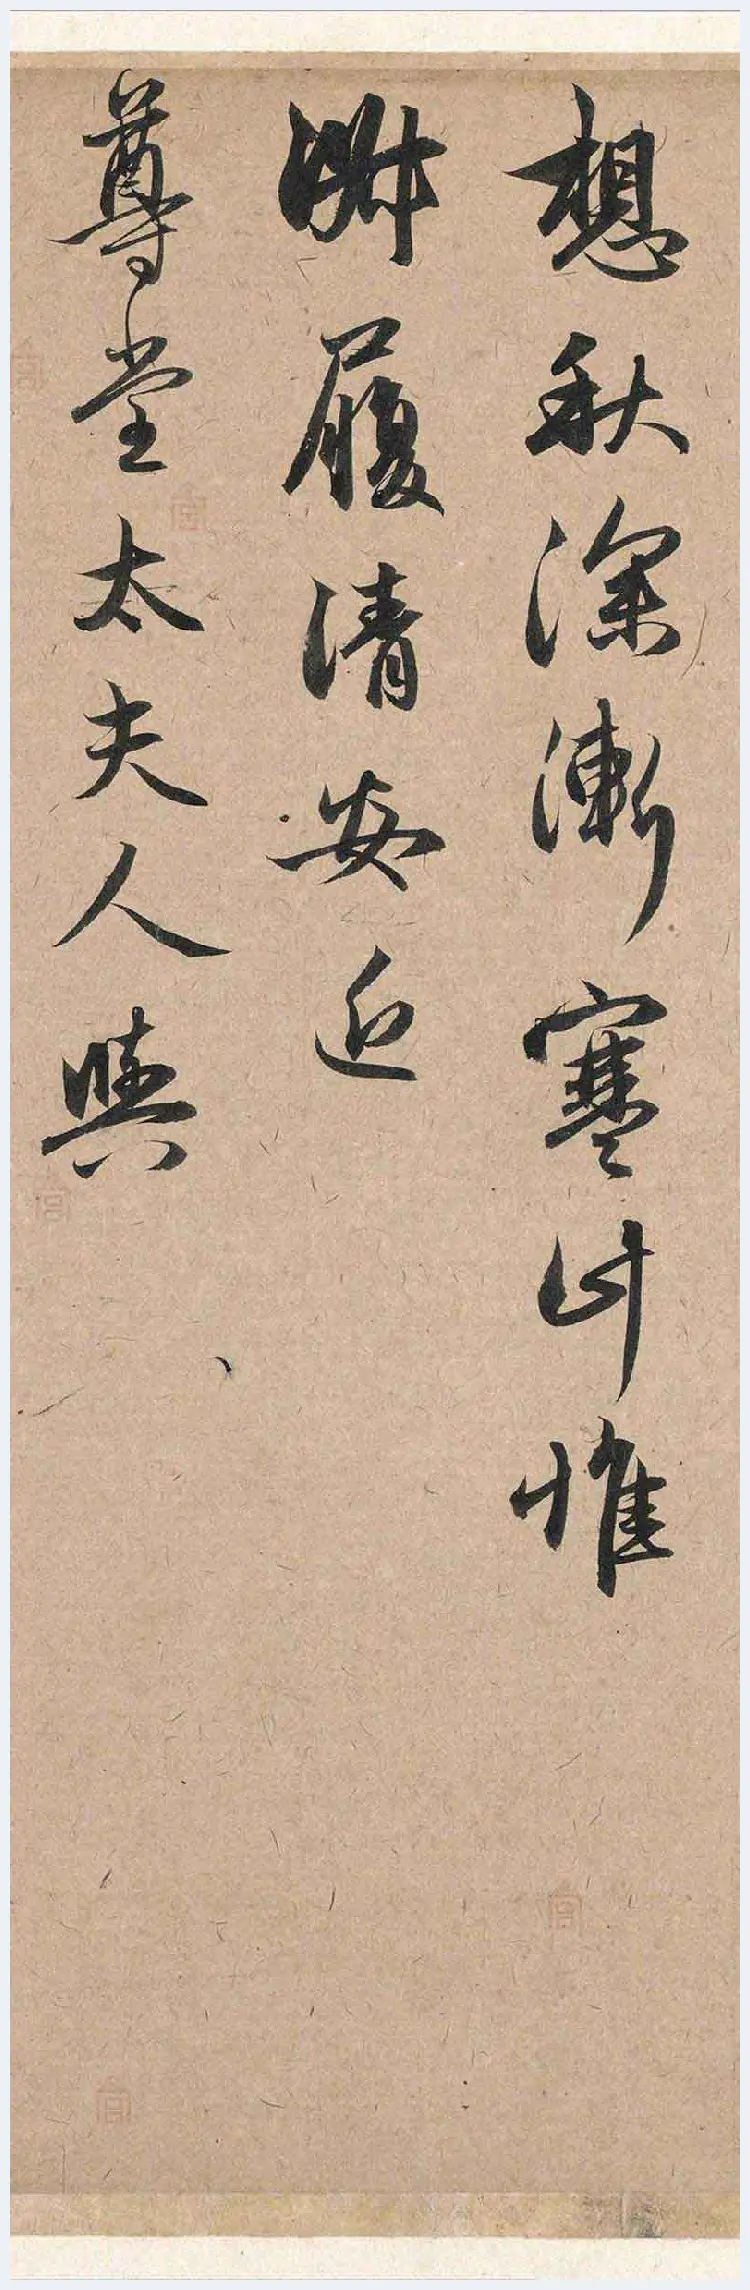 想秋深漸寒比惟
履清安近
尊堂太夫人與